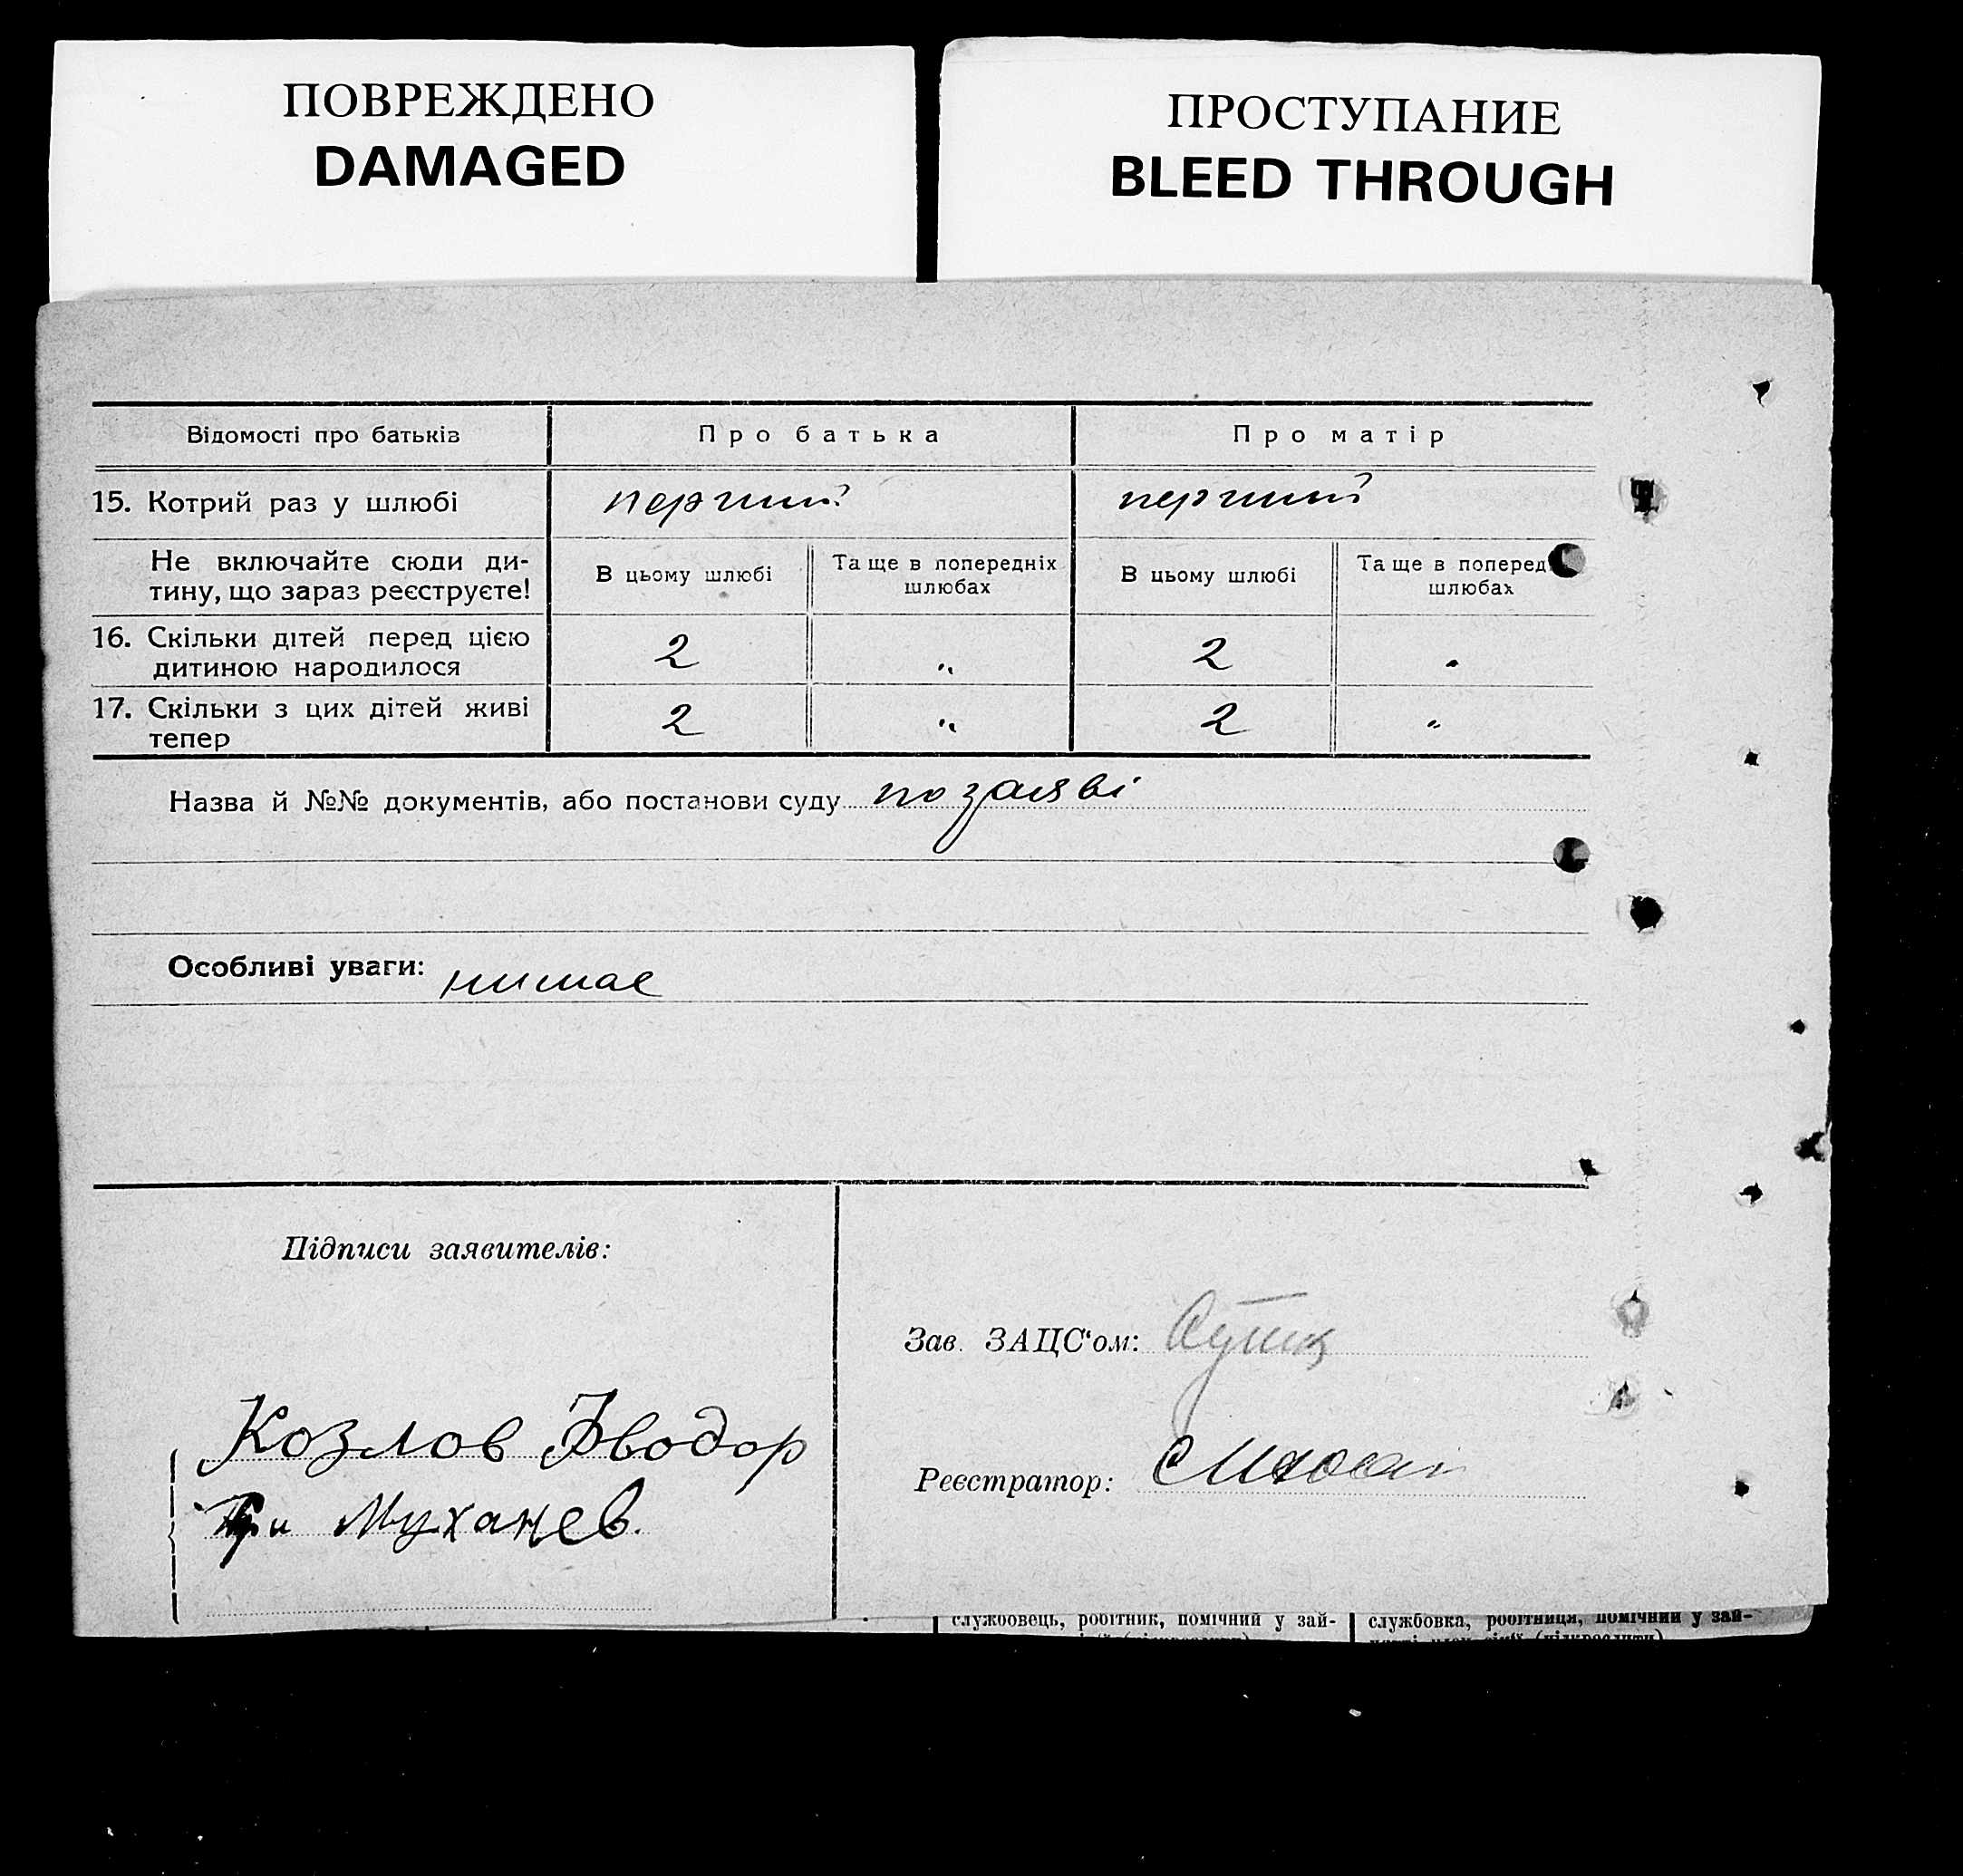 ПОВРЕЖДЕНО
DAMAGED
ПРОСТУПАНИЕ
BLEED THROUGH
Відомості про батьків
Про батька
Про матір
15. Котрий раз у шлюбі
перший
перший
Не включайте сюди ди-
тину, що зараз реєструєте!
В цьому шлюбі
Та ще в попередніх
шлюбах
В цьому шлюбі
Та ще в поперед
шлюбах
16. Скільки дітей перед цією
дитиною народилося
2
"
2
"
17. Скільки з цих дітей живі
тепер
2
"
2
"
Назва й №№ документів, або постанови суду по заяві
Особливі уваги: нимає
Підписи заявителів:
Зав. ЗАЦС'ом:
Козлов Фводор
Реєстратор:
Муханев.
службовець, робітник, помічний у зай-
службовка, робітниця, помічний у зай-